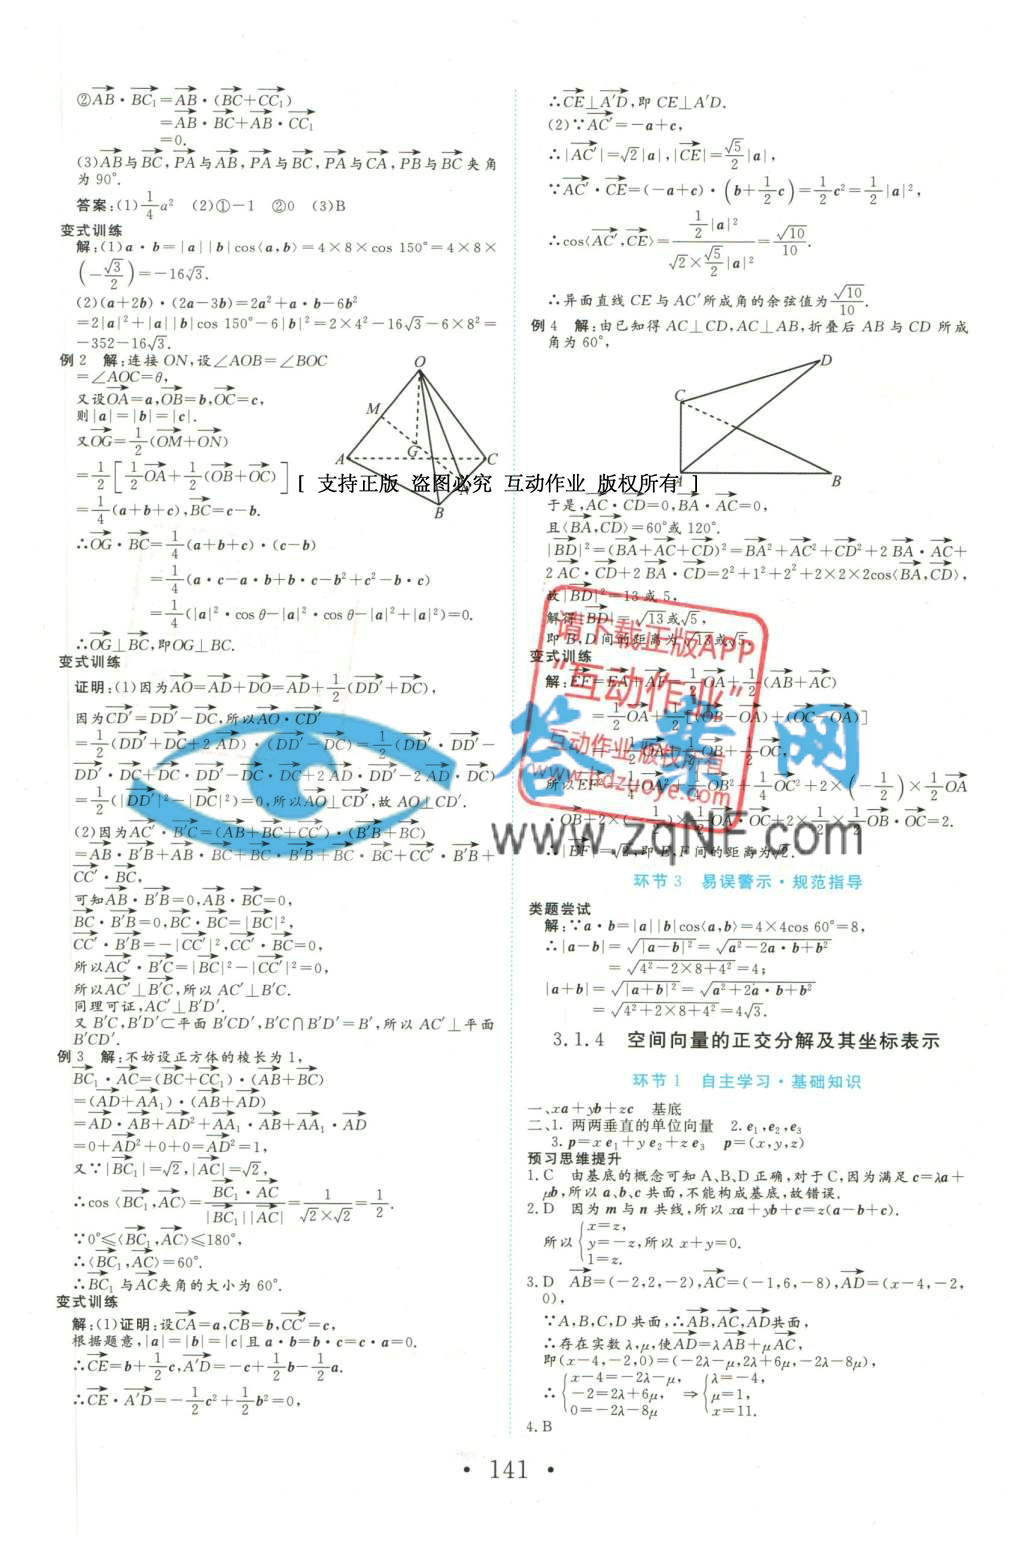 ②AB·BC₁=AB·(BC+CC₁)
=AB·BC+AB·CC₁
=0.
(3)AB与BC,PA与AB,PA与BC,PA与CA,PB与BC夹角
为90°.
答案:(1)1/4 a² (2)①-1 ②0 (3)B
变式训练
解:(1)a·b=|a||b|cos⟨a,b⟩=4×8×cos 150°=4×8×
(-√3/2)=-16√3.
(2)(a+2b)·(2a-3b)=2a²+a·b-6b²
=2|a|²+|a||b|cos 150°-6|b|²=2×4²-16√3-6×8²=
-352-16√3.
例2 解:连接ON,设∠AOB=∠BOC
=∠AOC=θ,
又设OA=a,OB=b,OC=c,
则|a|=|b|=|c|.
又OG=1/2(OM+ON)
=1/2[1/2OA+1/2(OB+OC)]
=1/4(a+b+c),BC=c-b.
∴OG·BC=1/4(a+b+c)·(c-b)
=1/4(a·c-a·b+b·c-b²+c²-b·c)
=1/4(|a|²·cos θ-|a|²·cos θ-|a|²+|a|²)=0.
∴OG⊥BC,即OG⊥BC.
O
M
G
A
C
N
B
[ 支持正版 盗图必究 互动作业 版权所有 ]
变式训练
证明:(1)因为AO=AD+DO=AD+1/2(DD′+DC),
因为CD′=DD′-DC,所以AO·CD′
=1/2(DD′+DC+2 AD)·(DD′-DC)=1/2(DD′·DD′-
DD′·DC+DC·DD′-DC·DC+2 AD·DD′-2 AD·DC)
=1/2(|DD′|²-|DC|²)=0,所以AO⊥CD′,故AO⊥CD′.
(2)因为AC′·B′C=(AB+BC+CC′)·(B′B+BC)
=AB·B′B+AB·BC+BC·B′B+BC·BC+CC′·B′B+
CC′·BC,
可知AB·B′B=0,AB·BC=0,
BC·B′B=0,BC·BC=|BC|²,
CC′·B′B=-|CC′|²,CC′·BC=0,
所以AC′·B′C=|BC|²-|CC′|²=0,
所以AC′⊥B′C,所以AC′⊥B′C.
同理可证,AC′⊥B′D′.
又B′C,B′D′⊂平面B′CD′,B′C∩B′D′=B′,所以AC′⊥平面
B′CD′.
例3 解:不妨设正方体的棱长为1,
BC₁·AC=(BC+CC₁)·(AB+BC)
=(AD+AA₁)·(AB+AD)
=AD·AB+AD²+AA₁·AB+AA₁·AD
=0+AD²+0+0=AD²=1,
又∵|BC₁|=√2,|AC|=√2,
∴cos⟨BC₁,AC⟩=BC₁·AC/|BC₁||AC|=1/√2×√2=1/2.
∵0°≤⟨BC₁,AC⟩≤180°,
∴⟨BC₁,AC⟩=60°.
∴BC₁与AC夹角的大小为60°.
变式训练
解:(1)证明:设CA=a,CB=b,CC′=c,
根据题意,|a|=|b|=|c|且a·b=b·c=c·a=0.
∴CE=b+1/2c,A′D=-c+1/2b-1/2a.
∴CE·A′D=-1/2c²+1/2b²=0,
∴CE⊥A′D,即CE⊥A′D.
(2)∵AC′=-a+c,
∴|AC′|=√2|a|,|CE|=√5/2|a|,
∵AC′·CE=(-a+c)·(b+1/2c)=1/2c²=1/2|a|²,
∴cos⟨AC′,CE⟩=1/2|a|²/√2×√5/2|a|²=√10/10.
∴异面直线CE与AC′所成角的余弦值为√10/10.
例4 解:由已知得AC⊥CD,AC⊥AB,折叠后AB与CD所成
角为60°,
D
C
A
B
于是,AC·CD=0,BA·AC=0,
且⟨BA,CD⟩=60°或120°.
|BD|²=(BA+AC+CD)²=BA²+AC²+CD²+2 BA·AC+
2 AC·CD+2 BA·CD=2²+1²+2²+2×2×2cos⟨BA,CD⟩,
故|BD|²=13或5,
解得|BD|=√13或√5,
即B,D间的距离为√13或√5.
变式训练
解:EF=EA+AF=-1/2OA+1/2(AB+AC)
=-1/2OA+1/2[(OB-OA)+(OC-OA)]
1/2OA+1/2OB+1/2OC,
所以EF²=1/4OA²+1/4OB²+1/4OC²+2×(-1/2)×1/2OA
·OB+2×(-1/2)×1/2OA·OC+2×1/2×1/2OB·OC=2.
∴|EF|=√2,即E,F间的距离为√2.
请下载正版APP
“互动作业”
互动作业 版权所有
www.hdzuoye.com
答案网
www.zqNF.com
环节3 易误警示·规范指导
类题尝试
解:∵a·b=|a||b|cos⟨a,b⟩=4×4cos 60°=8,
∴|a-b|=√|a-b|²=√a²-2a·b+b²
=√4²-2×8+4²=4;
|a+b|=√|a+b|²=√a²+2a·b+b²
=√4²+2×8+4²=4√3.
3.1.4 空间向量的正交分解及其坐标表示
环节1 自主学习·基础知识
一、xa+yb+zc 基底
二、1.两两垂直的单位向量 2.e₁,e₂,e₃
3.p=x e₁+y e₂+z e₃ p=(x,y,z)
预习思维提升
1.C 由基底的概念可知A、B、D正确,对于C,因为满足c=λa+
μb,所以a、b、c共面,不能构成基底,故错误.
2.D 因为m与n共线,所以xa+yb+c=z(a-b+c).
所以{x=z,
y=-z,所以x+y=0.
1=z.
3.D AB=(-2,2,-2),AC=(-1,6,-8),AD=(x-4,-2,
0),
∵A,B,C,D共面,∴AB,AC,AD共面,
∴存在实数λ,μ,使AD=λAB+μAC,
即(x-4,-2,0)=(-2λ-μ,2λ+6μ,-2λ-8μ),
∴{x-4=-2λ-μ, {λ=-4,
-2=2λ+6μ, ⇒ μ=1,
0=-2λ-8μ x=11.
4.B
·141·